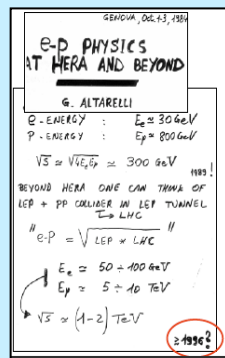 GENOVA, Oct. 1-3, 1984
e-p PHYSICS
AT HERA AND BEYOND
G. ALTARELLI
e-ENERGY : Ee ≃ 30 GeV
P-ENERGY : Ep ≃ 800 GeV
√s ≃ √4EeEp ≃ 300 GeV
1989!
BEYOND HERA ONE CAN THINK OF
LEP + PP COLLIDER IN LEP TUNNEL
↳ LHC
"e-P = √LEP * LHC"
Ee ≃ 50 ÷ 100 GeV
Ep ≃ 5 ÷ 10 TeV
√s ≃ (1-2) TeV
≥1996?